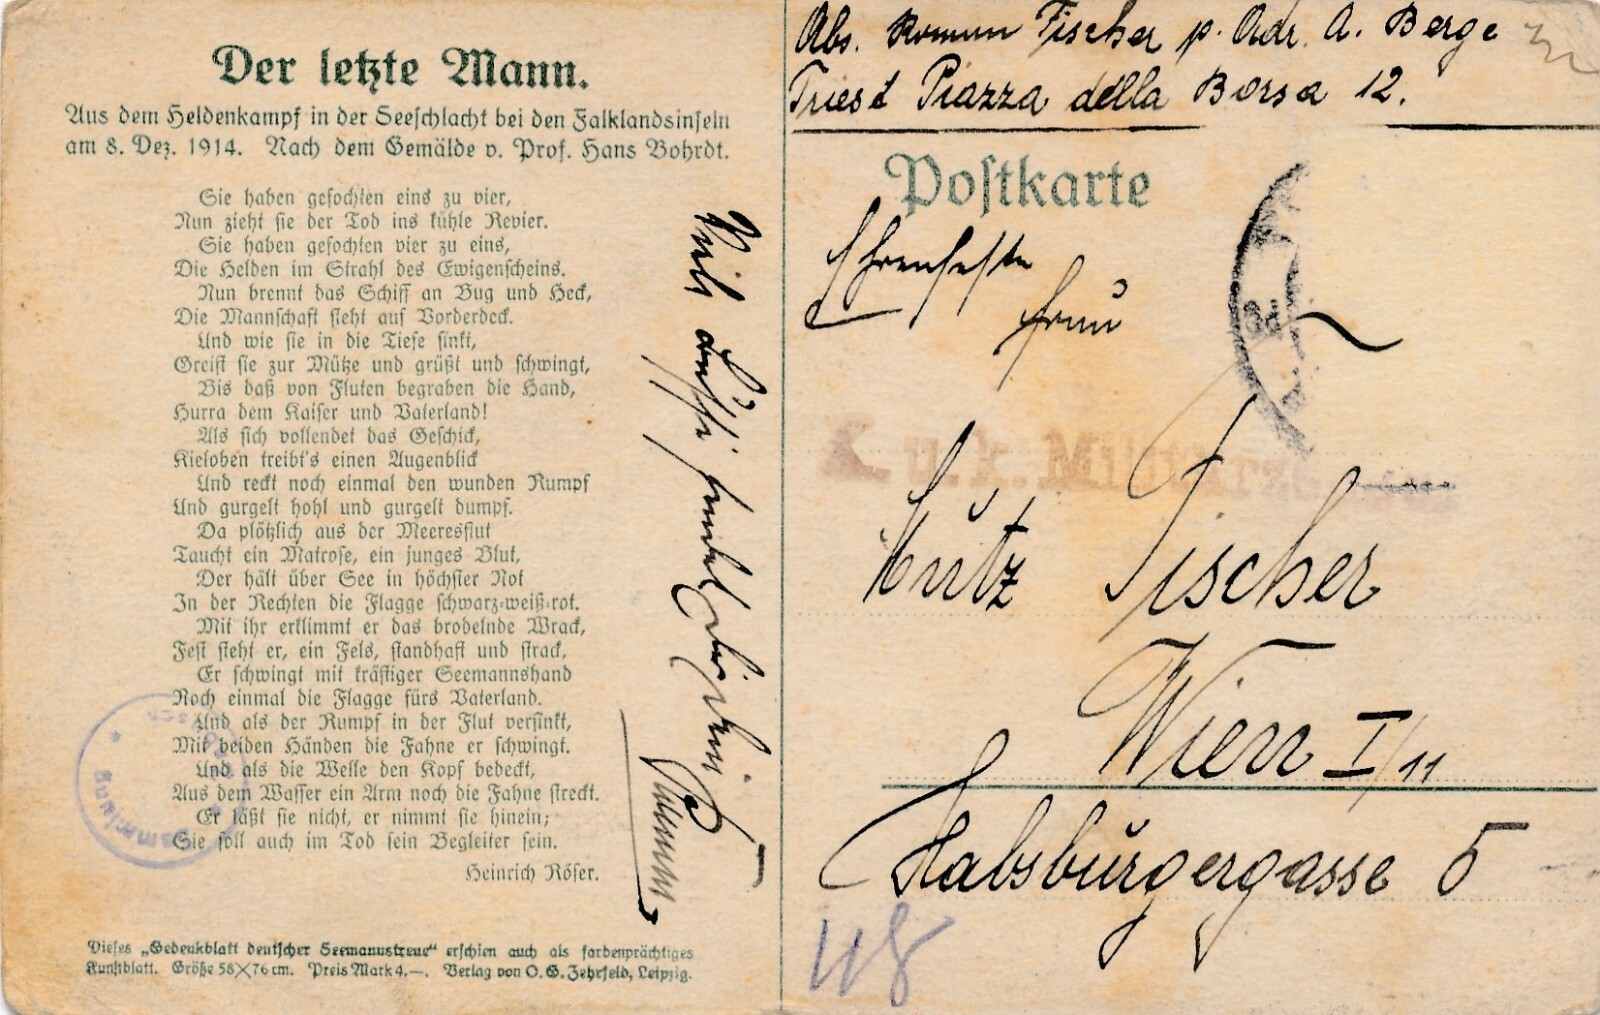 Der letzte Mann.
Aus dem Heldenkampf in der Seeschlacht bei den Falklandsinseln
am 8. Dez. 1914. Nach dem Gemälde v. Prof. Hans Bohrdt.
Sie haben gefochten eins zu vier,
Nun zieht sie der Tod ins kühle Revier.
Sie haben gefochten vier zu eins,
Die Helden im Strahl des Ewigenscheins.
Nun brennt das Schiff an Bug und Heck,
Die Mannschaft steht auf Vorderdeck.
Und wie sie in die Tiefe sinkt,
Greift sie zur Mütze und grüßt und schwingt,
Bis daß von Fluten begraben die Hand,
Hurra dem Kaiser und Vaterland!
Als sich vollendet das Geschick,
Kieloben treibt's einen Augenblick
Und reckt noch einmal den wunden Rumpf
Und gurgelt hohl und gurgelt dumpf.
Da plötzlich aus der Meeresflut
Taucht ein Matrose, ein junges Blut,
Der hält über See in höchster Not
In der Rechten die Flagge schwarz-weiß-rot.
Mit ihr erklimmt er das brodelnde Wrack,
Fest steht er, ein Fels, standhaft und strack,
Er schwingt mit kräftiger Seemannshand
Noch einmal die Flagge fürs Vaterland.
Und als der Rumpf in der Flut versinkt,
Mit beiden Händen die Fahne er schwingt.
Und als die Welle den Kopf bedeckt,
Aus dem Wasser ein Arm noch die Fahne streckt.
Er läßt sie nicht, er nimmt sie hinein;
Sie soll auch im Tod sein Begleiter sein.
Heinrich Röser.
Dieses „Gedenkblatt deutscher Seemannstreue“ erschien auch als farbenprächtiges
Kunstblatt. Größe 58×76 cm. Preis Mark 4.—. Verlag von O. G. Zehrfeld, Leipzig.
Abs. Roman Fischer p. Adr. A. Berge
Triest Piazza della Borsa 12.
Postkarte
Frau
K. u. k. Militärzensur
Fischer
Wien I/11
Habsburgergasse 5
48